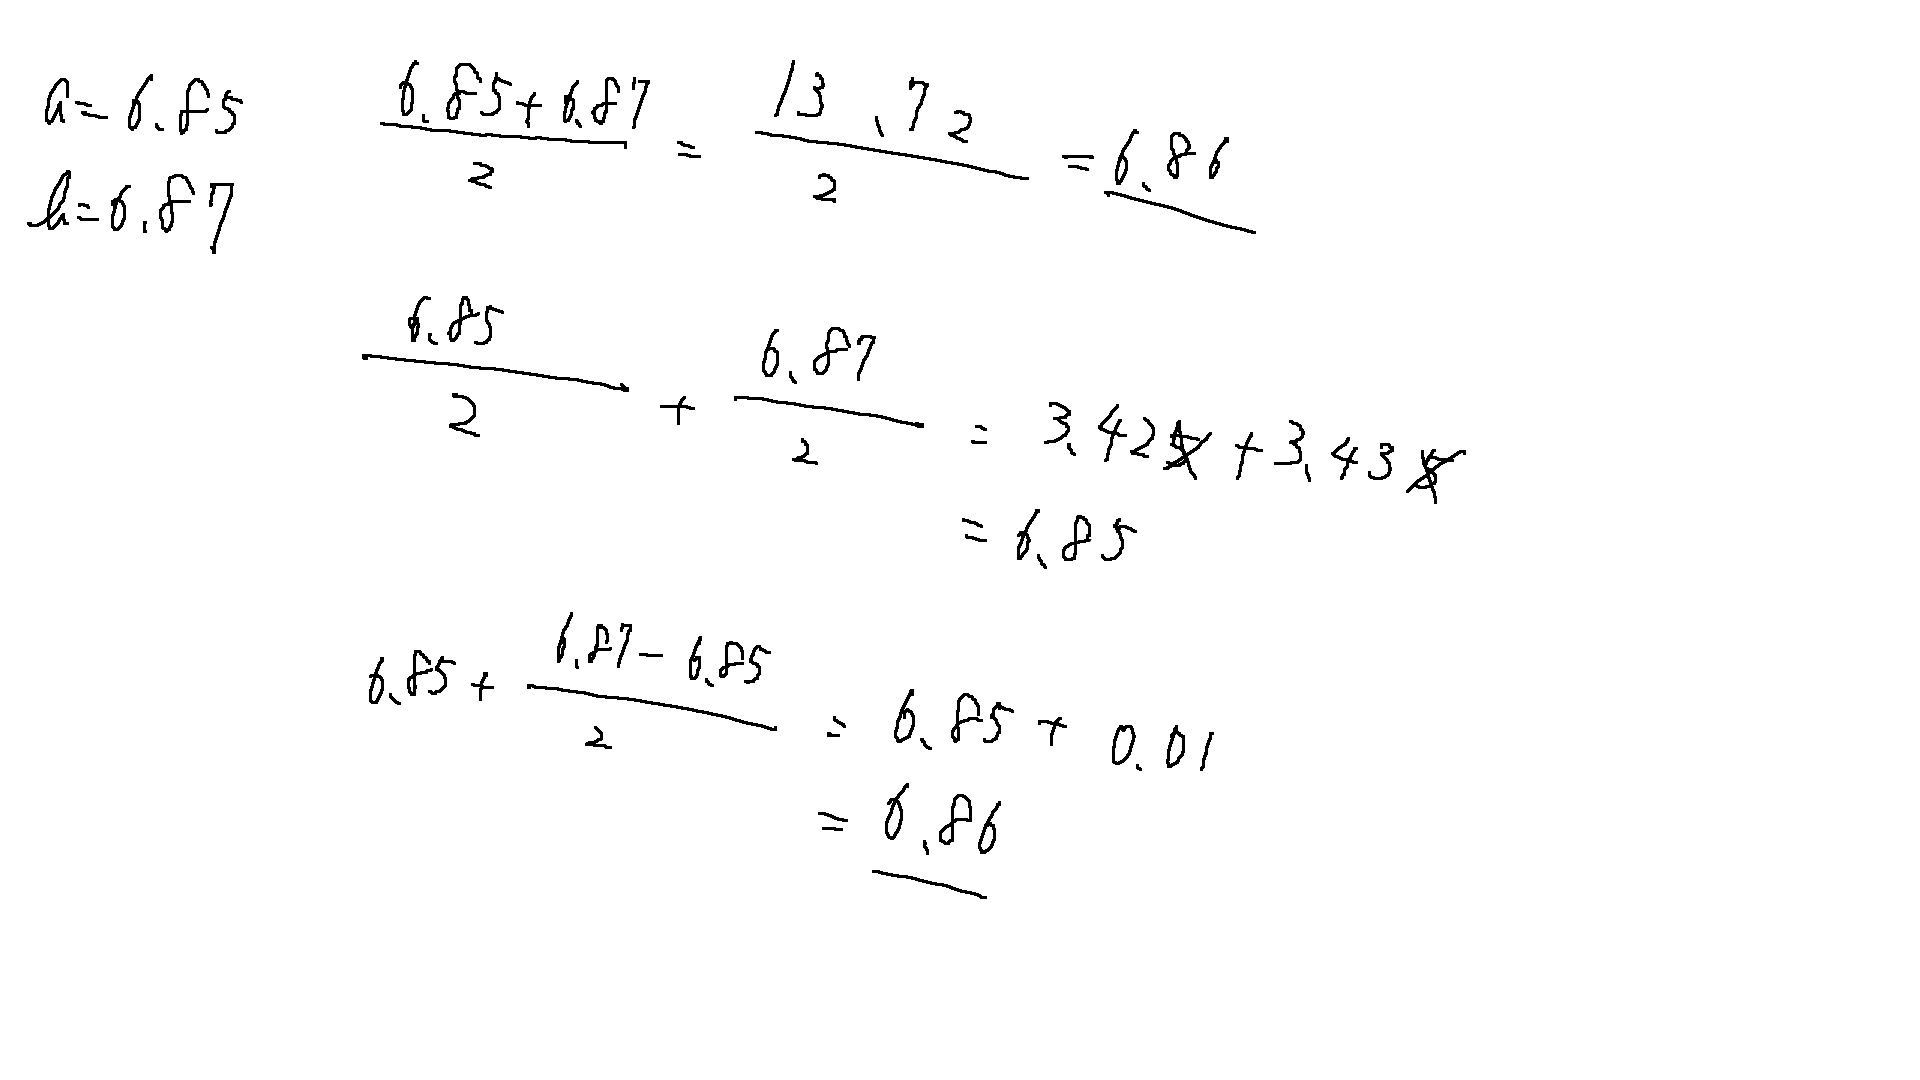 a=6.85
b=6.87
(6.85+6.87)/2 = 13.72/2 = 6.86
6.85/2 + 6.87/2 = 3.425 + 3.435
= 6.85
6.85 + (6.87-6.85)/2 = 6.85 + 0.01
= 6.86